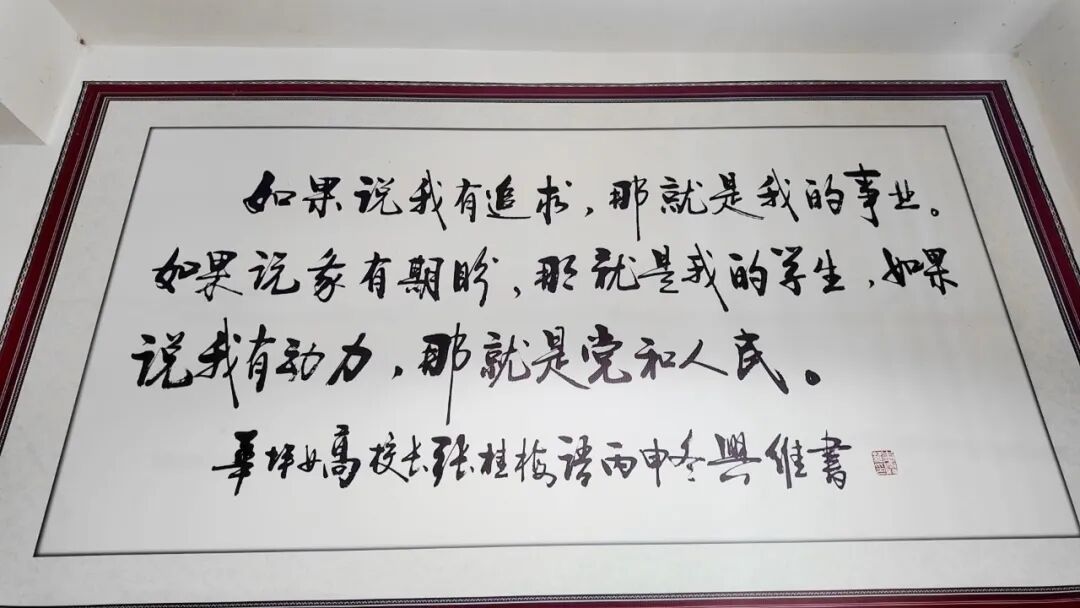 如果说我有追求,那就是我的事业。
如果说我有期盼,那就是我的学生,如果
说我有动力,那就是党和人民。
华坪女高校长张桂梅语丙申冬兴维书